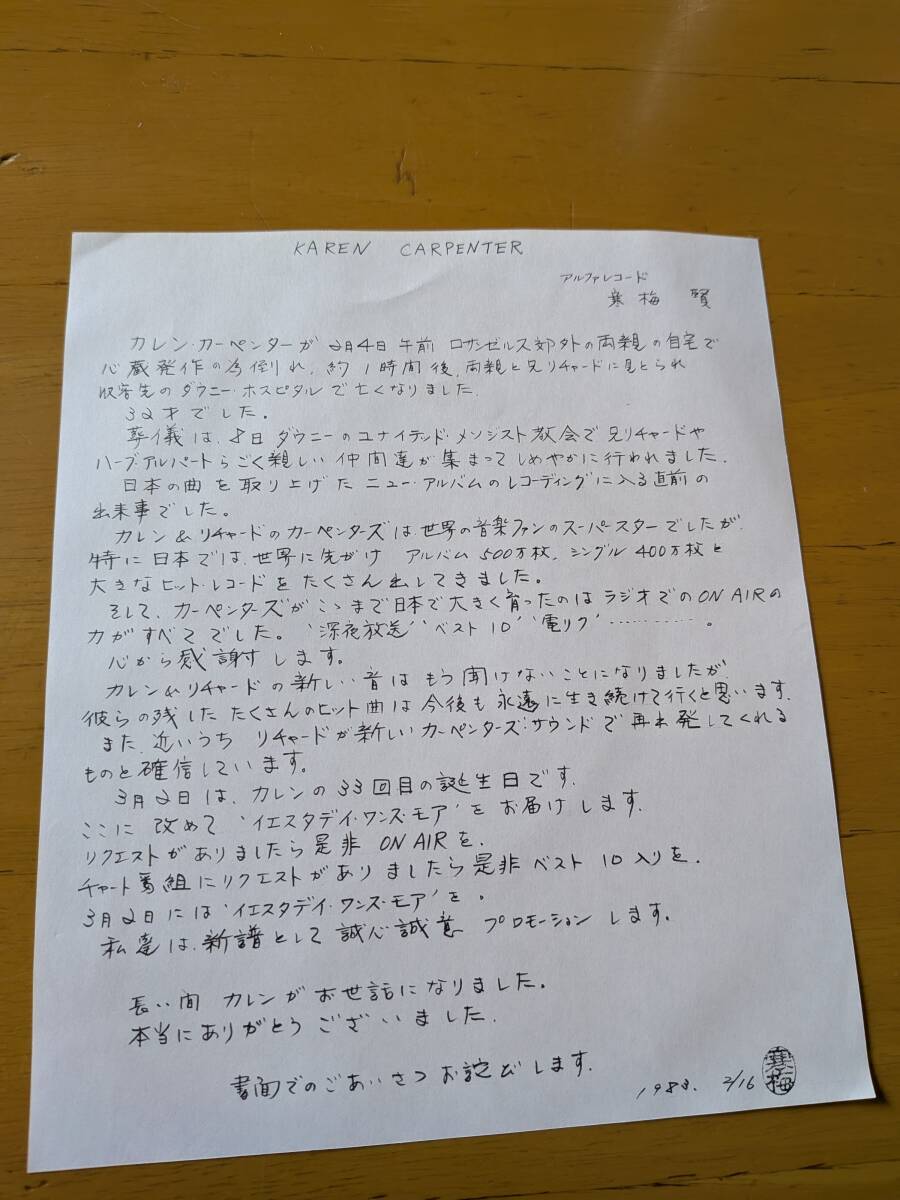 KAREN CARPENTER
アルファレコード
寒梅 賢
カレン・カーペンターが 2月4日午前 ロサンゼルス郊外の両親の自宅で
心蔵発作の為倒れ、約1時間後、両親と兄リチャードに見とられ
収容先のダウニー・ホスピタルで亡くなりました.
32才でした。
葬儀は、8日ダウニーのユナイテッド・メソジスト教会で兄リチャードや
ハーブ・アルパートらごく親しい仲間達が集まってしめやかに行われました.
日本の曲を取り上げたニュー・アルバムのレコーディングに入る直前の
出来事でした。
カレン&リチャードのカーペンターズは世界の音楽ファンのスーパースターでしたが、
特に日本では、世界に先がけ アルバム500万枚、シングル400万枚と
大きなヒット・レコードをたくさん出してきました。
そして、カーペンターズがこゝまで日本で大きく育ったのはラジオでのON AIRの
力がすべてでした。"深夜放送" "ベスト10" "電リク"…………。
心から感謝します。
カレン&リチャードの新しい音はもう聞けないことになりましたが、
彼らの残したたくさんのヒット曲は今後も永遠に生き続けて行くと思います.
また、近いうち リチャードが新しいカーペンターズ・サウンドで再出発してくれる
ものと確信しています。
3月2日は、カレンの33回目の誕生日です.
ここに 改めて 'イエスタデイ・ワンス・モア'をお届けします.
リクエストがありましたら是非 ON AIRを.
チャート番組にリクエストがありましたら是非ベスト10入りを.
3月2日には'イエスタデイ・ワンス・モア'を。
私達は、新譜として誠心誠意 プロモーションします.
長い間 カレンがお世話になりました.
本当にありがとうございました.
書面でのごあいさつお詫びします.
1983. 2/16
寒梅